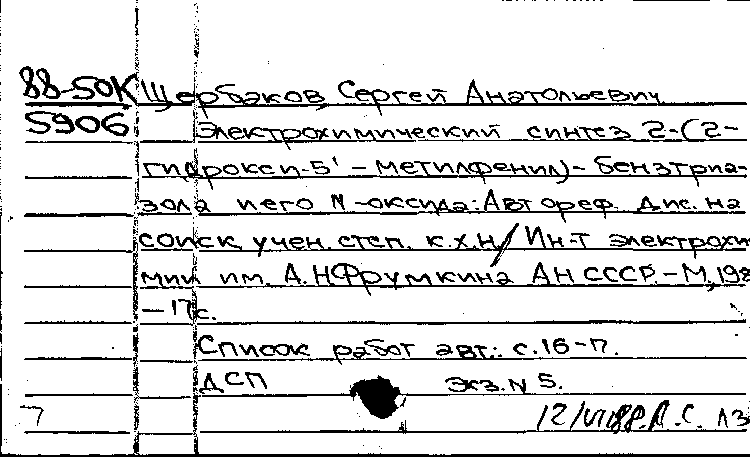 88-50К Щербаков, Сергей Анатольевич
5906 Электрохимический синтез 2-(2-
гидрокси-5'-метилфенил)-бензтриа-
зола и его N-оксида: Автореф. дис. на
соиск. учен. степ. к.х.н/ Ин-т электрохи
мии им. А.Н Фрумкина АН СССР.-М.,198
-17с.
Список работ авт.: с.16-17.
ДСП Экз.N 5.
7